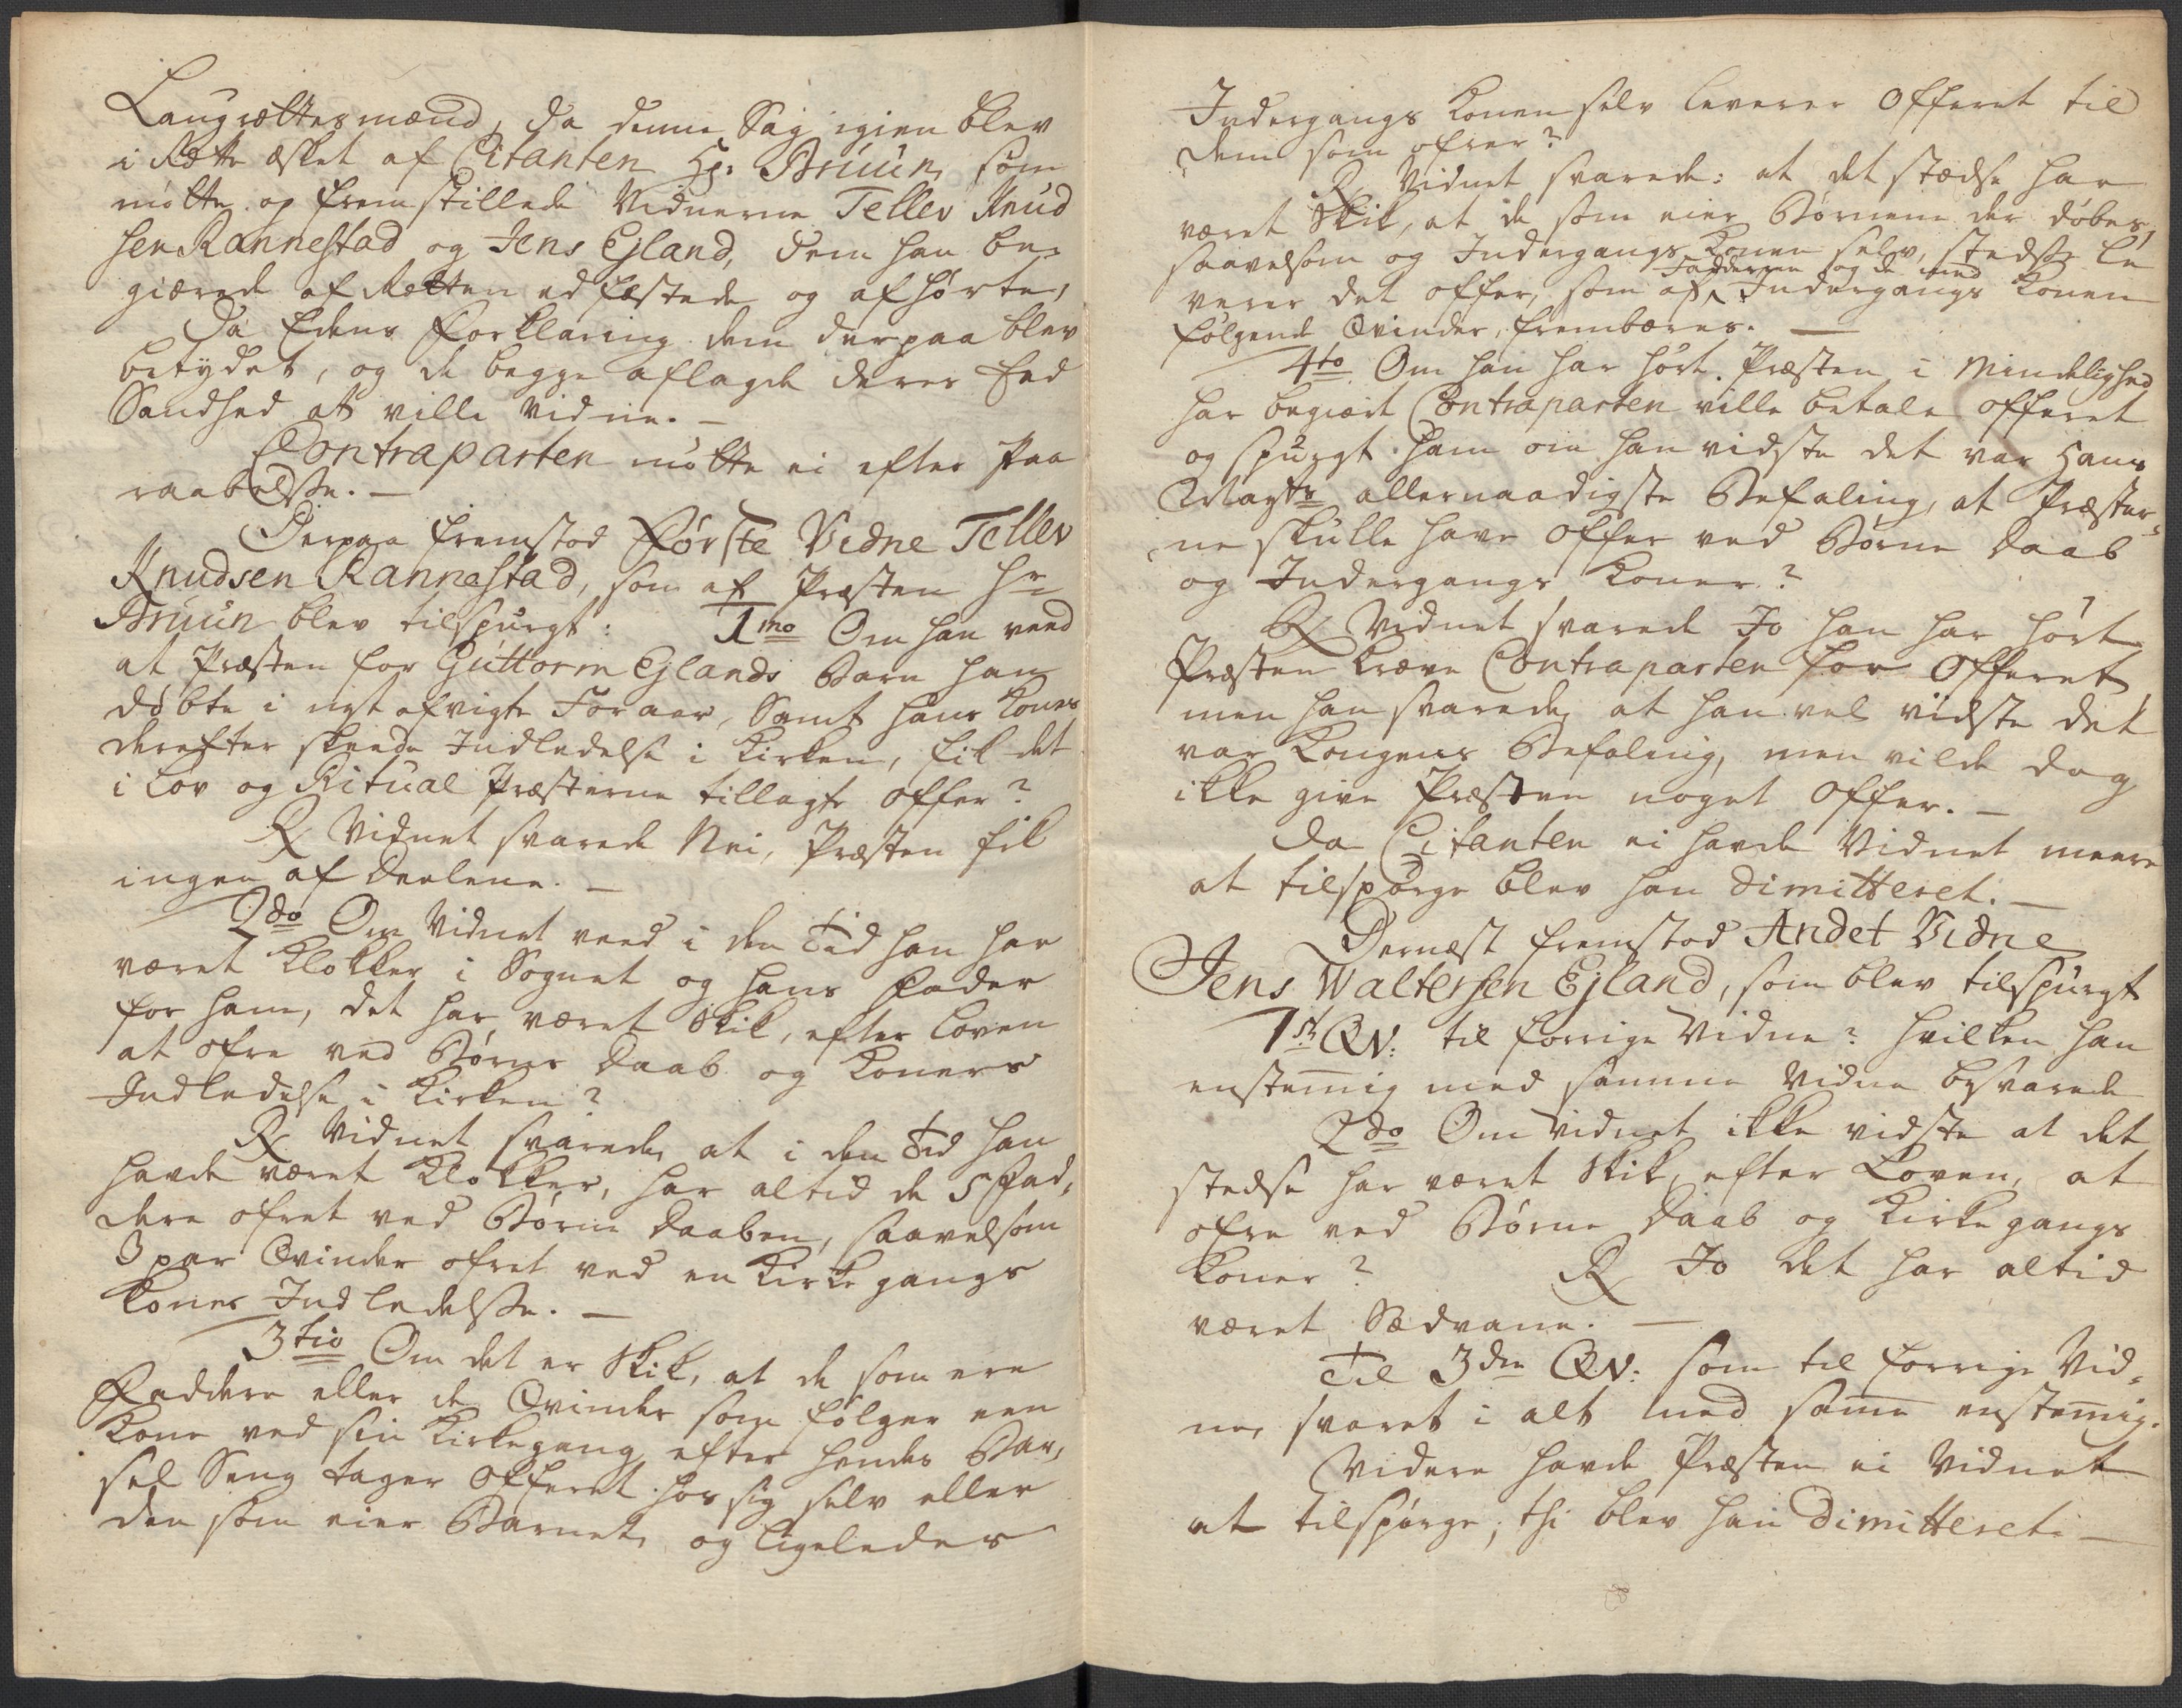 Laugrættesmænd, da denne Sag igien blev
i Rette æsket af Citanten Hr: Bruun, som
mötte og fremstillede Vidnerne Tellev Knud
sen Rannestad og Jens Ejland, dem han be-
giærede af Retten edfæstede og afhørte,
Da Edens Forklaring dem derpaa blev
betydet, og de begge aflagde deres Eed
Sandhed at ville vidne. —
Contraparten mötte ei efter Paa
raabelsse. —
Derpaa fremstod Förste Vidne Tellev
Knudsen Rannestad, som af Præsten Hr
Bruun blev tilspurgt: 1mo Om han veed
at Præsten for Guttorm Ejlands Barn han
döbte i nyt afvigte Foraar, Samt hans Kones
derefter skeede Indledelse i Kirken, fik det
i Lov og Ritual Præsterne tillagte Offer?
R Vidnet svarede Nei, Præsten fik
ingen af Deelene. —
2do Om Vidnet veed i den Tid han har
været Klokker i Sognet og hans Fader
for ham, det har været Skik, efter Loven
at ofre ved Börns Daab og Koners
Indledelse i Kirken?
R Vidnet svarede at i den Tid han
havde været Klokker, har altid de 5 Fad,
dere ofret ved Börne Daaben, saavelsom
3 par Qvinder ofret ved en Kirkegangs
Kones Indledelsse. —
3tio Om det er Skik, at de som ere
Faddere eller de Qvinder som fölger een
Kone ved sin Kirkegang efter hendes Bar,
sel Seng tager Offeret hos sig selv eller
den som eier Barnet, og ligeledes
Indergangs Konen selv leverer Offeret til
dem som ofrer?
R Vidnet svarede: at det stædse har
været Skik, at de som eier Börnene der döbes,
saavelsom og Indergangs Konen selv, stedsse le
verer det offer, som af Fadderne og de med Indergangs Konen
fölgende Qvinder, frembæres. —
4to Om han har hört Præsten i Mindelighed
har begiært Contraparten ville betale Offeret
og spurgt ham om han vidste det var Hans
Mayts allernaadigste Befaling, at Præster-
ne skulle have Offer ved Börne Daab
og Indergangs Koner?
R Vidnet svarede Jo han har hört
Præsten kræve Contraparten for Offeret,
men han svarede at han vel vidste det
var Kongens Befaling, men vilde dog
ikke give Præsten noget Offer. —
Da Citanten ei havde Vidnet meere
at tilspörge blev han dimitteret. —
Dernæst fremstod Andet Vidne
Jens Waltersen Ejland, som blev tilspurgt
1st QV: til forrige Vidne? hvilken han
enstem̅ig med samme Vidne besvarede
2do Om Vidnet ikke vidste at det
stedse har været Skik efter Loven, at
ofre ved Börne Daab og Kirkegangs
Koner? R Jo det har altid
været Sædvane. —
Til 3die QV: som til forrige Vid,
ne, svaret i alt med sam̅e enstem̅ig.
Videre havde Præsten ei Vidnet
at tilspörge; thi blev han dimitteret. —